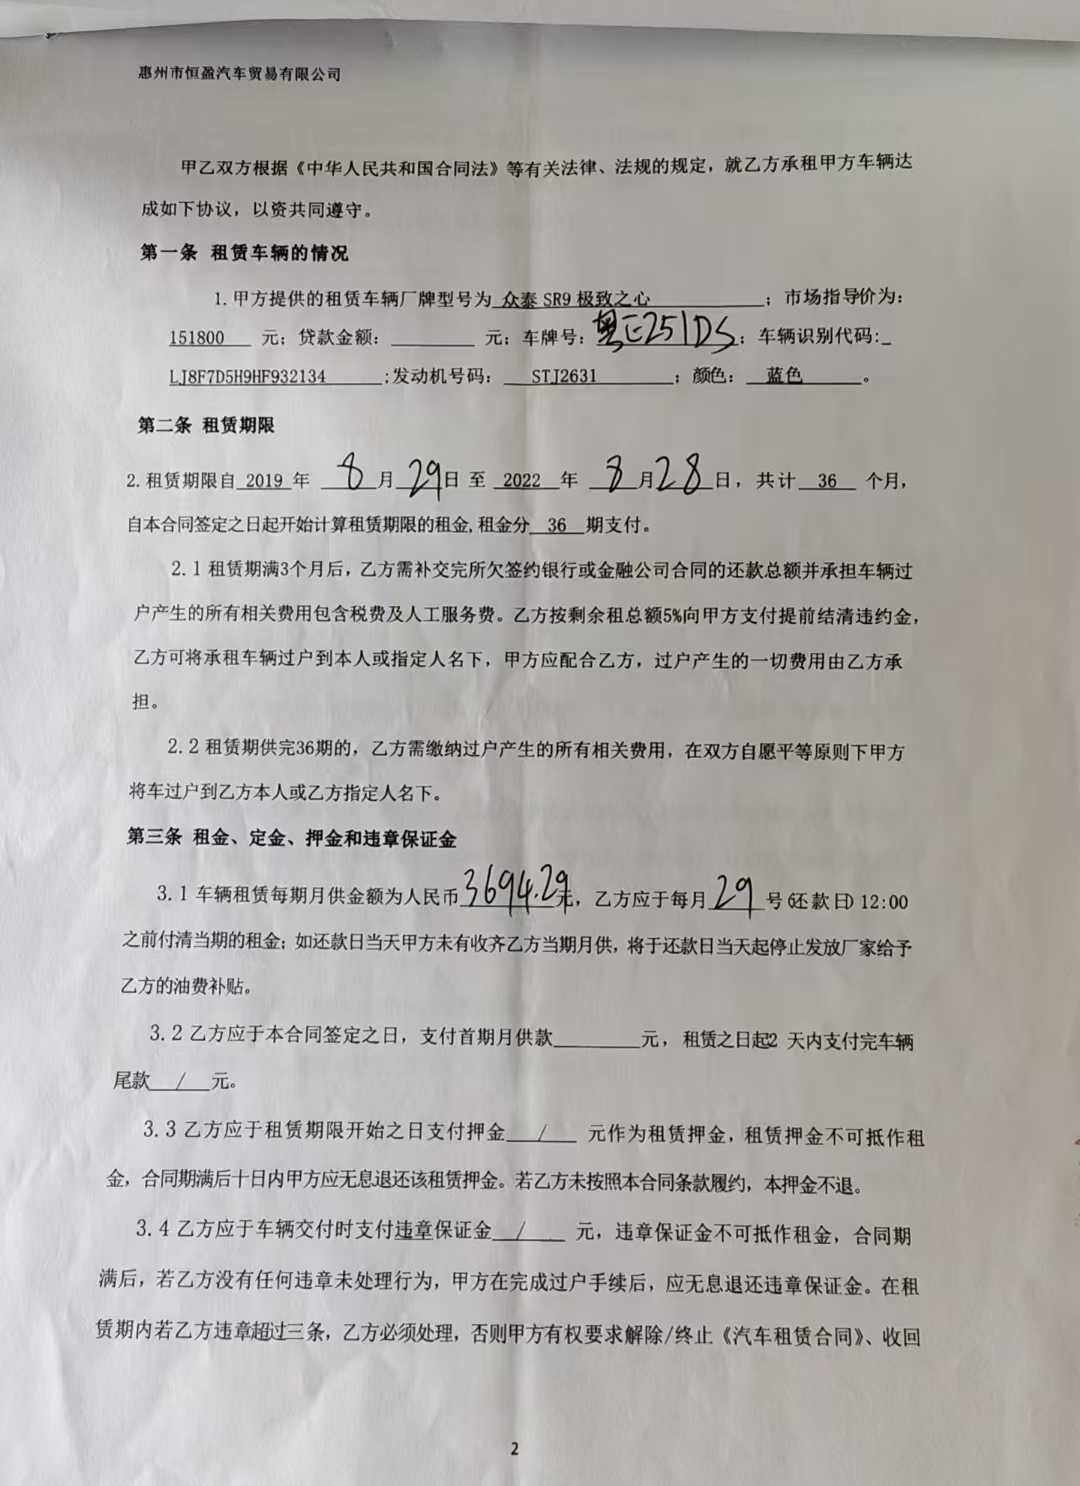 惠州市恒盈汽车贸易有限公司
甲乙双方根据《中华人民共和国合同法》等有关法律、法规的规定，就乙方承租甲方车辆达
成如下协议，以资共同遵守。
第一条 租赁车辆的情况
1.甲方提供的租赁车辆厂牌型号为 众泰 SR9 极致之心 ；市场指导价为：
151800 元；贷款金额：____ 元；车牌号：粤E251DS；车辆识别代码:_
LJ8F7D5H9HF932134 ;发动机号码： STJ2631 ；颜色： 蓝色 。
第二条 租赁期限
2.租赁期限自 2019 年 8 月 29 日 至 2022 年 8 月 28 日，共计 36 个月，
自本合同签定之日起开始计算租赁期限的租金,租金分 36 期支付。
2.1 租赁期满3个月后，乙方需补交完所欠签约银行或金融公司合同的还款总额并承担车辆过
户产生的所有相关费用包含税费及人工服务费。乙方按剩余租总额5%向甲方支付提前结清违约金，
乙方可将承租车辆过户到本人或指定人名下，甲方应配合乙方，过户产生的一切费用由乙方承
担。
2.2 租赁期供完36期的，乙方需缴纳过户产生的所有相关费用，在双方自愿平等原则下甲方
将车过户到乙方本人或乙方指定人名下。
第三条 租金、定金、押金和违章保证金
3.1 车辆租赁每期月供金额为人民币 3694.29 元，乙方应于每月 29 号(还款日) 12:00
之前付清当期的租金；如还款日当天甲方未有收齐乙方当期月供，将于还款日当天起停止发放厂家给予
乙方的油费补贴。
3.2 乙方应于本合同签定之日，支付首期月供款____元，租赁之日起2 天内支付完车辆
尾款 / 元。
3.3 乙方应于租赁期限开始之日支付押金 / 元作为租赁押金，租赁押金不可抵作租
金，合同期满后十日内甲方应无息退还该租赁押金。若乙方未按照本合同条款履约，本押金不退。
3.4 乙方应于车辆交付时支付违章保证金 / 元，违章保证金不可抵作租金，合同期
满后，若乙方没有任何违章未处理行为，甲方在完成过户手续后，应无息退还违章保证金。在租
赁期内若乙方违章超过三条，乙方必须处理，否则甲方有权要求解除/终止《汽车租赁合同》、收回
2